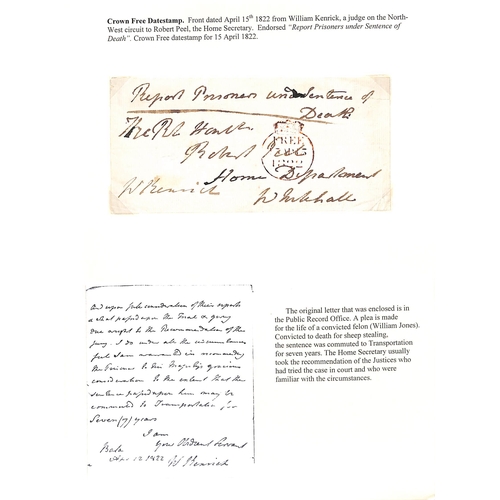 Crown Free Datestamp. Front dated April 15th 1822 from William Kenrick, a judge on the North-
West circuit to Robert Peel, the Home Secretary. Endorsed "Report Prisoners under Sentence of
Death". Crown Free datestamp for 15 April 1822.
Report Prisoners under Sentence of
Death
The Rt Honble
Robert Peel
FREE
1822
Home Department
W Kenrick
Whitehall
And upon full consideration of their reports
& what passed upon the Trial & giving
due weight to the Recommendation of the
Jury. I do under all the circumstances
feel I am warranted in recommending
the Prisoner to his Majesty's gracious
consideration to the extent that the
sentence passed upon him may be
commuted to Transportation for
Seven (7) years
I am
your Obedient Servant
Bala
Apr 12 1822 W Kenrick
The original letter that was enclosed is in
the Public Record Office. A plea is made
for the life of a convicted felon (William Jones).
Convicted to death for sheep stealing,
the sentence was commuted to Transportation
for seven years. The Home Secretary usually
took the recommendation of the Justices who
had tried the case in court and who were
familiar with the circumstances.